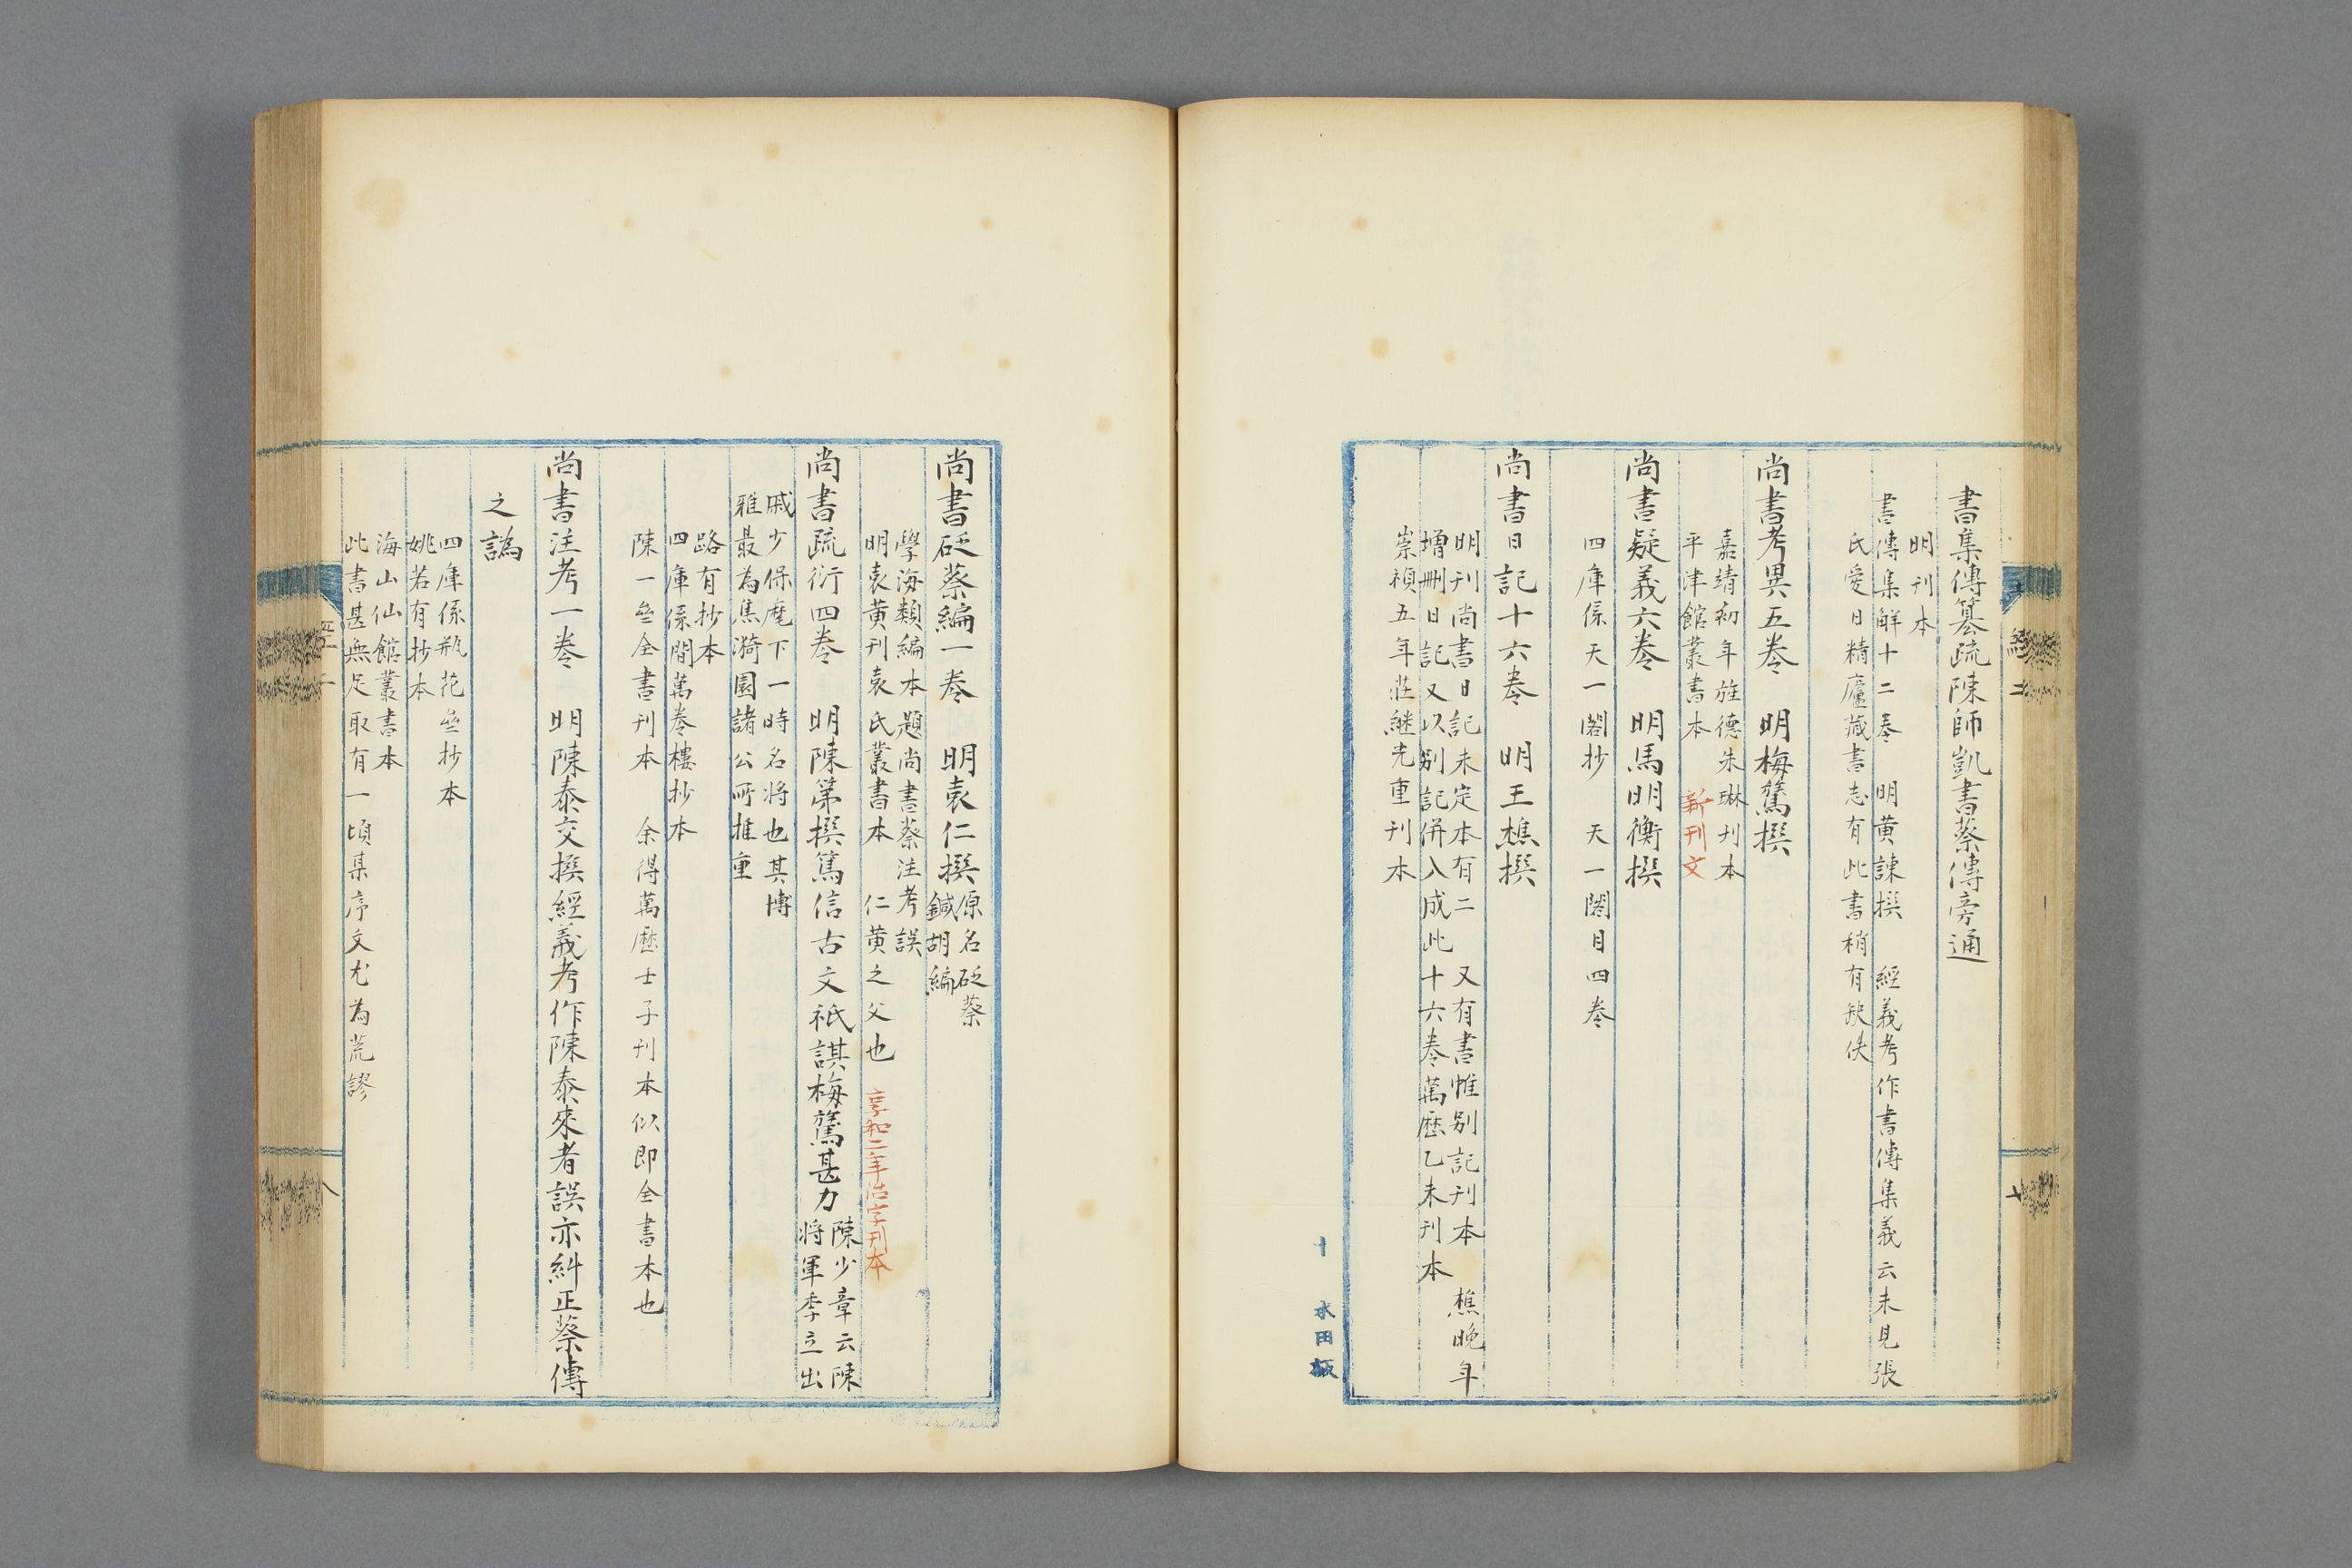 書集傳纂疏陳師凱書蔡傳旁通
明刊本
書傳集解十二卷　明黄諫撰　經義考作書傳集義云未見張
氏愛日精廬藏書志有此書稍有缺佚
尚書考異五卷　明梅鷟撰
嘉靖初年旌德朱琳刊本
平津館叢書本　新刊文
尚書疑義六卷　明馬明衡撰
四庫係天一閣抄　天一閣目四卷
尚書日記十六卷　明王樵撰
明刊尚書日記未定本有二　又有書惟别記刊本　樵晚年
增刪日記又以别記併入成此十六卷萬歷乙未刊本
崇禎五年莊継光重刊本
十　水田板
尚書砭蔡編一卷　明袁仁撰原名砭蔡
鍼胡編
學海類編本題尚書蔡注考誤
明袁黄刊袁氏叢書本　仁黄之父也　享和二年活字刊本
尚書疏衍四卷　明陳第撰篤信古文祇諆梅鷟甚力陳少章云陳
将軍季立出
戚少保麾下一時名将也其博
雅最為焦漪園諸公所推重
路有抄本
四庫係閒萬卷樓抄本
陳一齋全書刊本　余得萬歷士子刊本似即全書本也
尚書注考一卷　明陳泰交撰經義考作陳泰來者誤亦糾正蔡傳
之譌
四庫係瓶花齋抄本
姚若有抄本
海山仙館叢書本
此書甚無足取有一頃某序文尤為荒謬